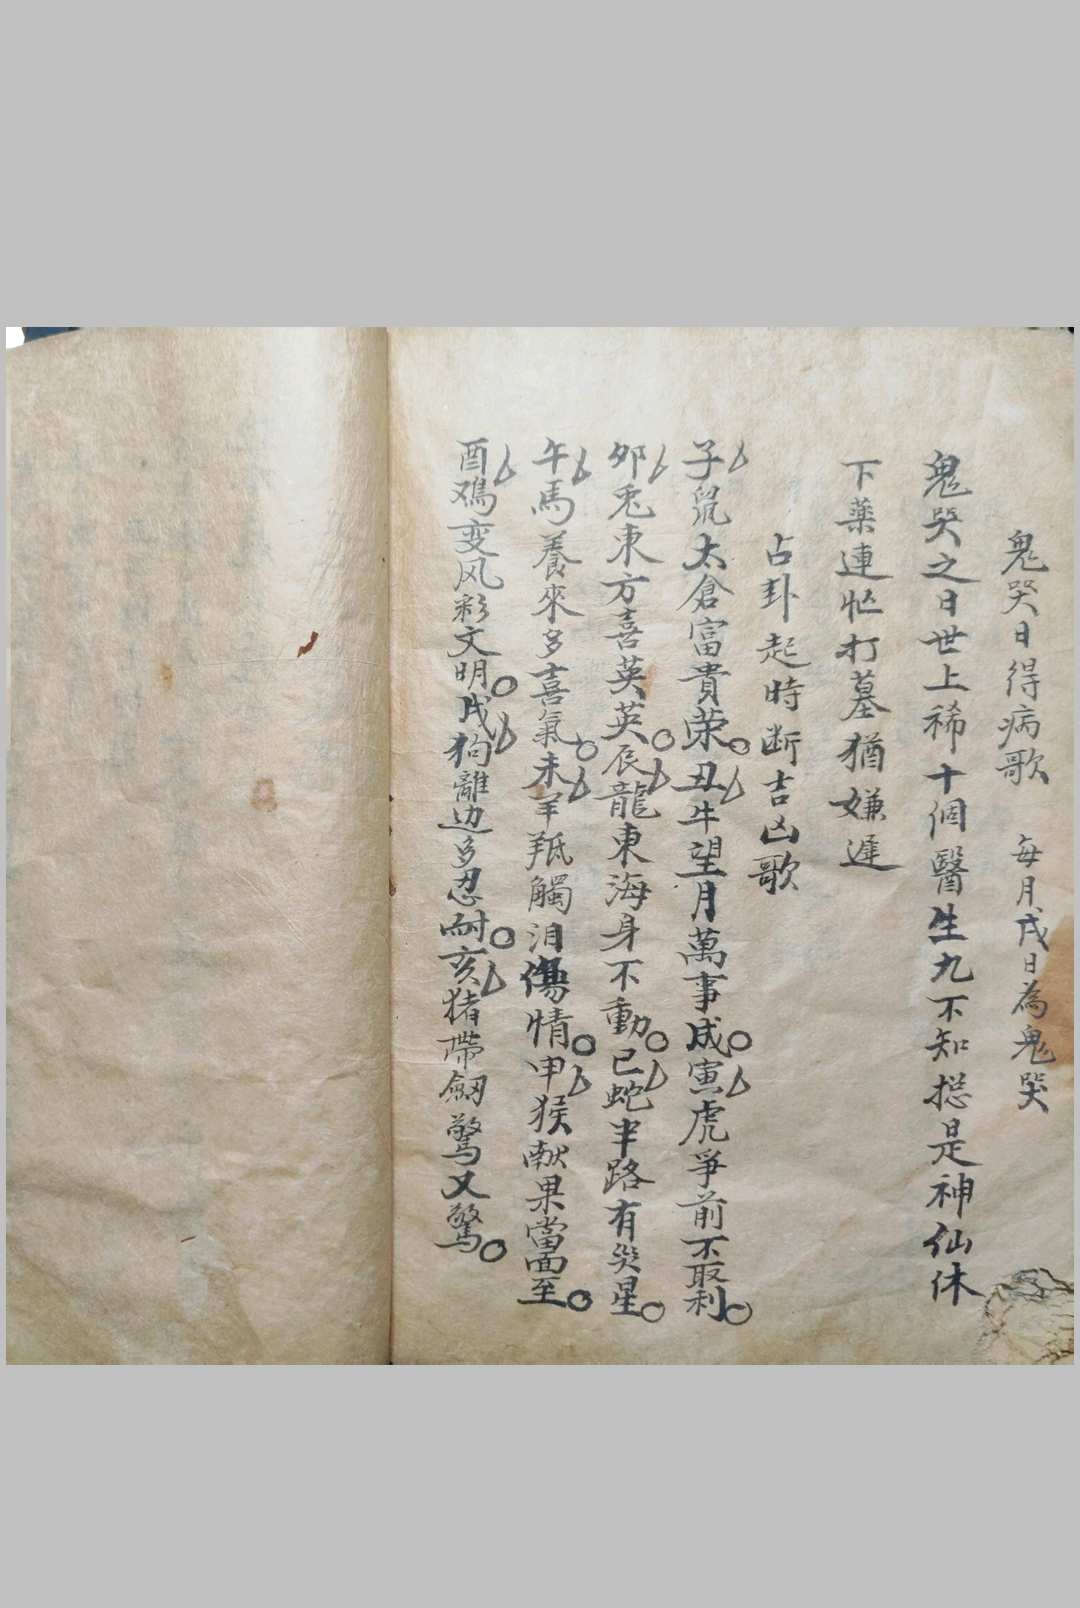 鬼哭日得病歌　每月戌日為鬼哭
鬼哭之日世上稀十個醫生九不知捴是神仙休
下藥連忙打墓猶嫌遲
占卦起時断吉凶歌
子鼠太倉富貴荣○丑牛望月萬事成○寅虎爭前不取利○
卯兎東方喜英英○辰龍東海身不動○巳蛇半路有災星○
午馬養來多喜氣○未羊羝觸泪傷情○申猴献果當面至○
酉鳮变风彩文明○戌狗離边多忍耐○亥猪帶劔驚又驚○